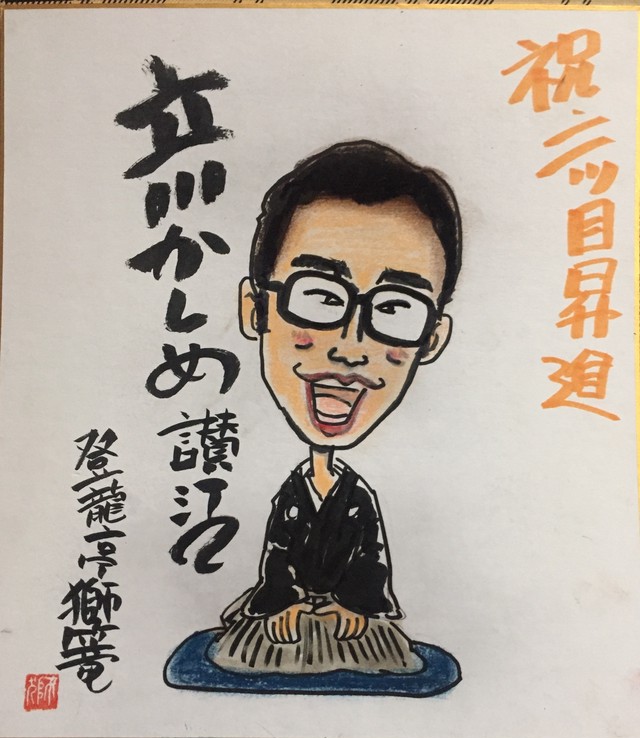 祝・二ツ目昇進
立川かしめ讃江
登龍亭獅篭